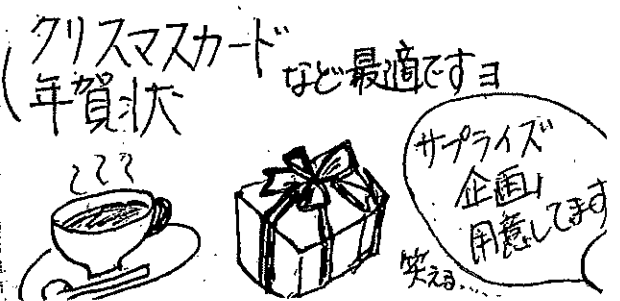 クリスマスカード
年賀状
など最適ですヨ
サプライズ
企画
用意してます
笑える....